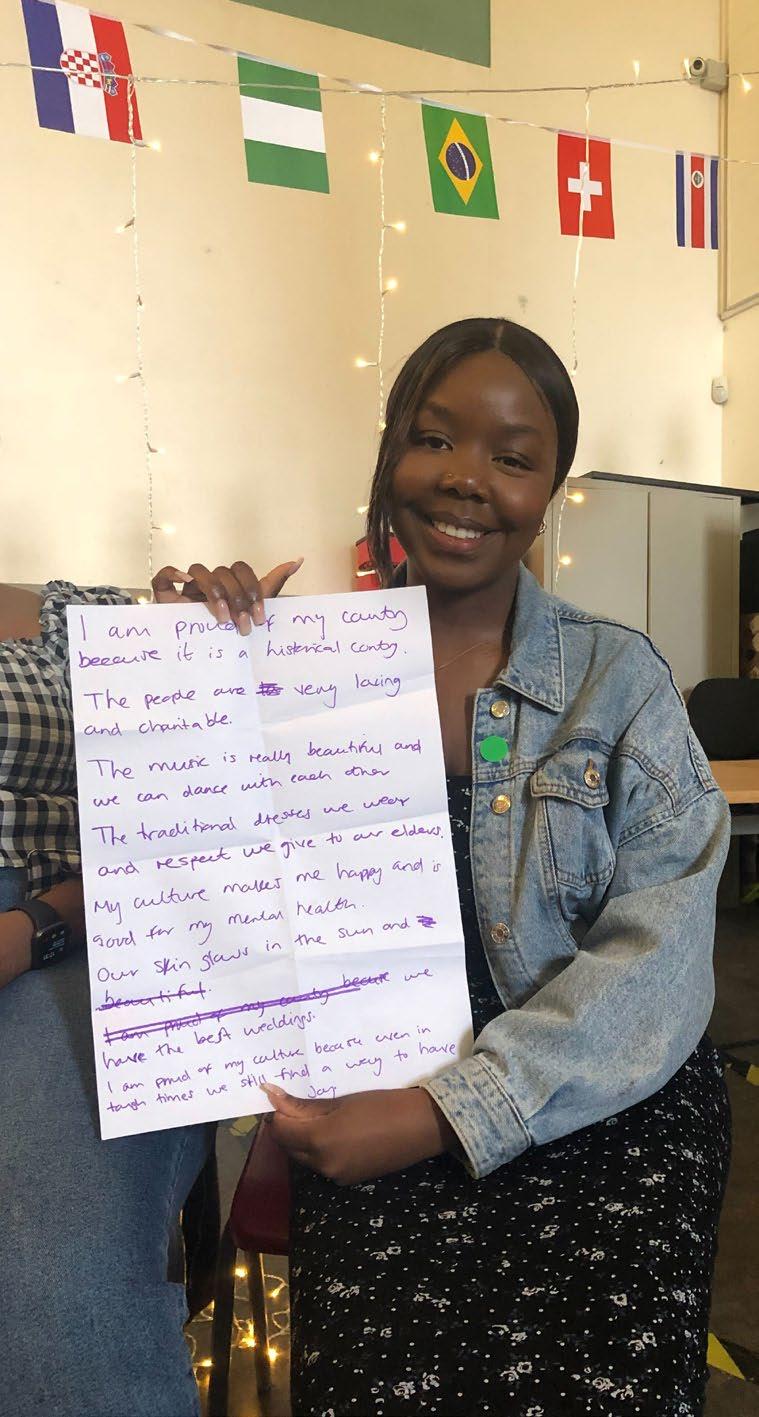 I am proud of my county
because it is a historical county.
The people are very loving
and charitable.
The music is really beautiful and
we can dance with each other
The traditional dresses we wear
and respect we give to our elders.
My culture makes me happy and is
good for my mental health.
Our skin glows in the sun and
beautiful.
I am proud of my county because we
have the best weddings.
I am proud of my culture because even in
tough times we still find a way to have
Joy